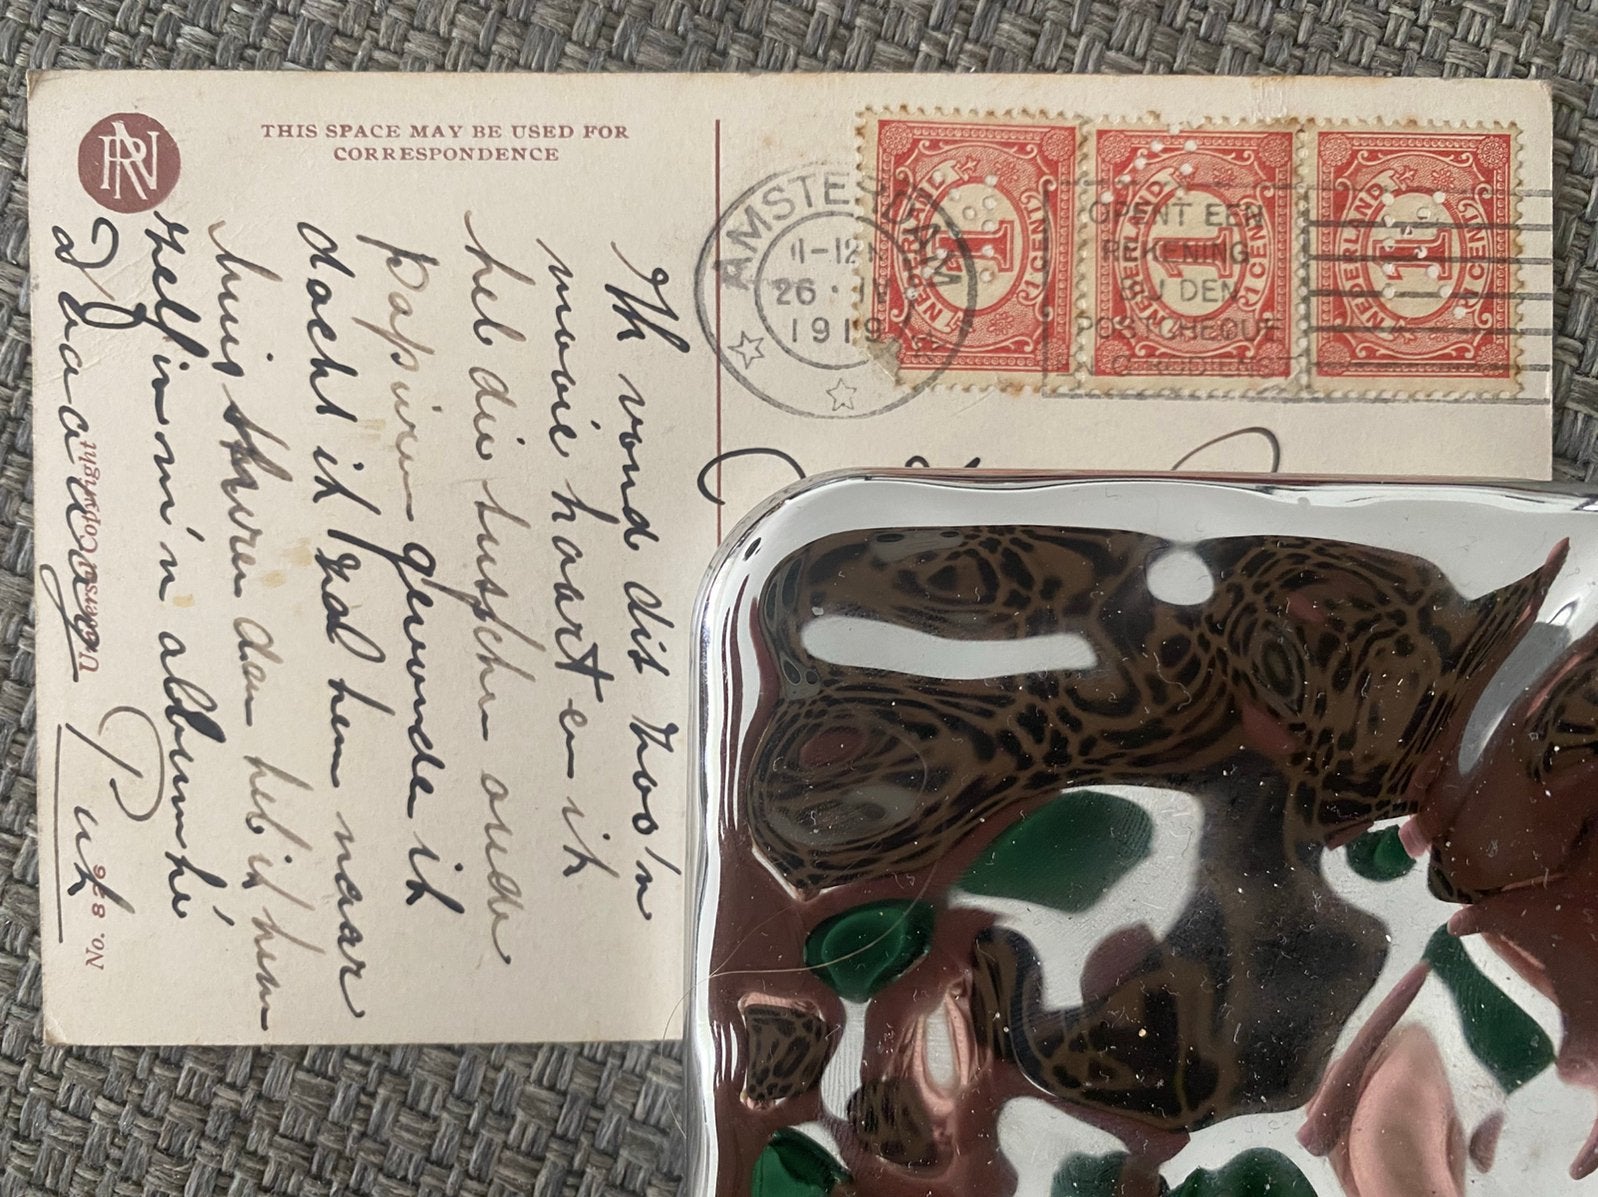 THIS SPACE MAY BE USED FOR
CORRESPONDENCE
AMSTERDAM
11-12
26 · IV
1919
OPENT EEN
REKENING
BIJ DEN
POSTCHEQUE
NEDERLAND
1
1 CENT
NEDERLAND
1
1 CENT
NEDERLAND
1
1 CENT
Ik vond dit zoo'n
mooie kaart en ik
heb die tusschen oude
papieren gevonden ik
dacht ik zal hem naar
huis sturen dan heb ik hem
zelf in m'n album hè
Daaaaag
Puk
Copyright
No. 876